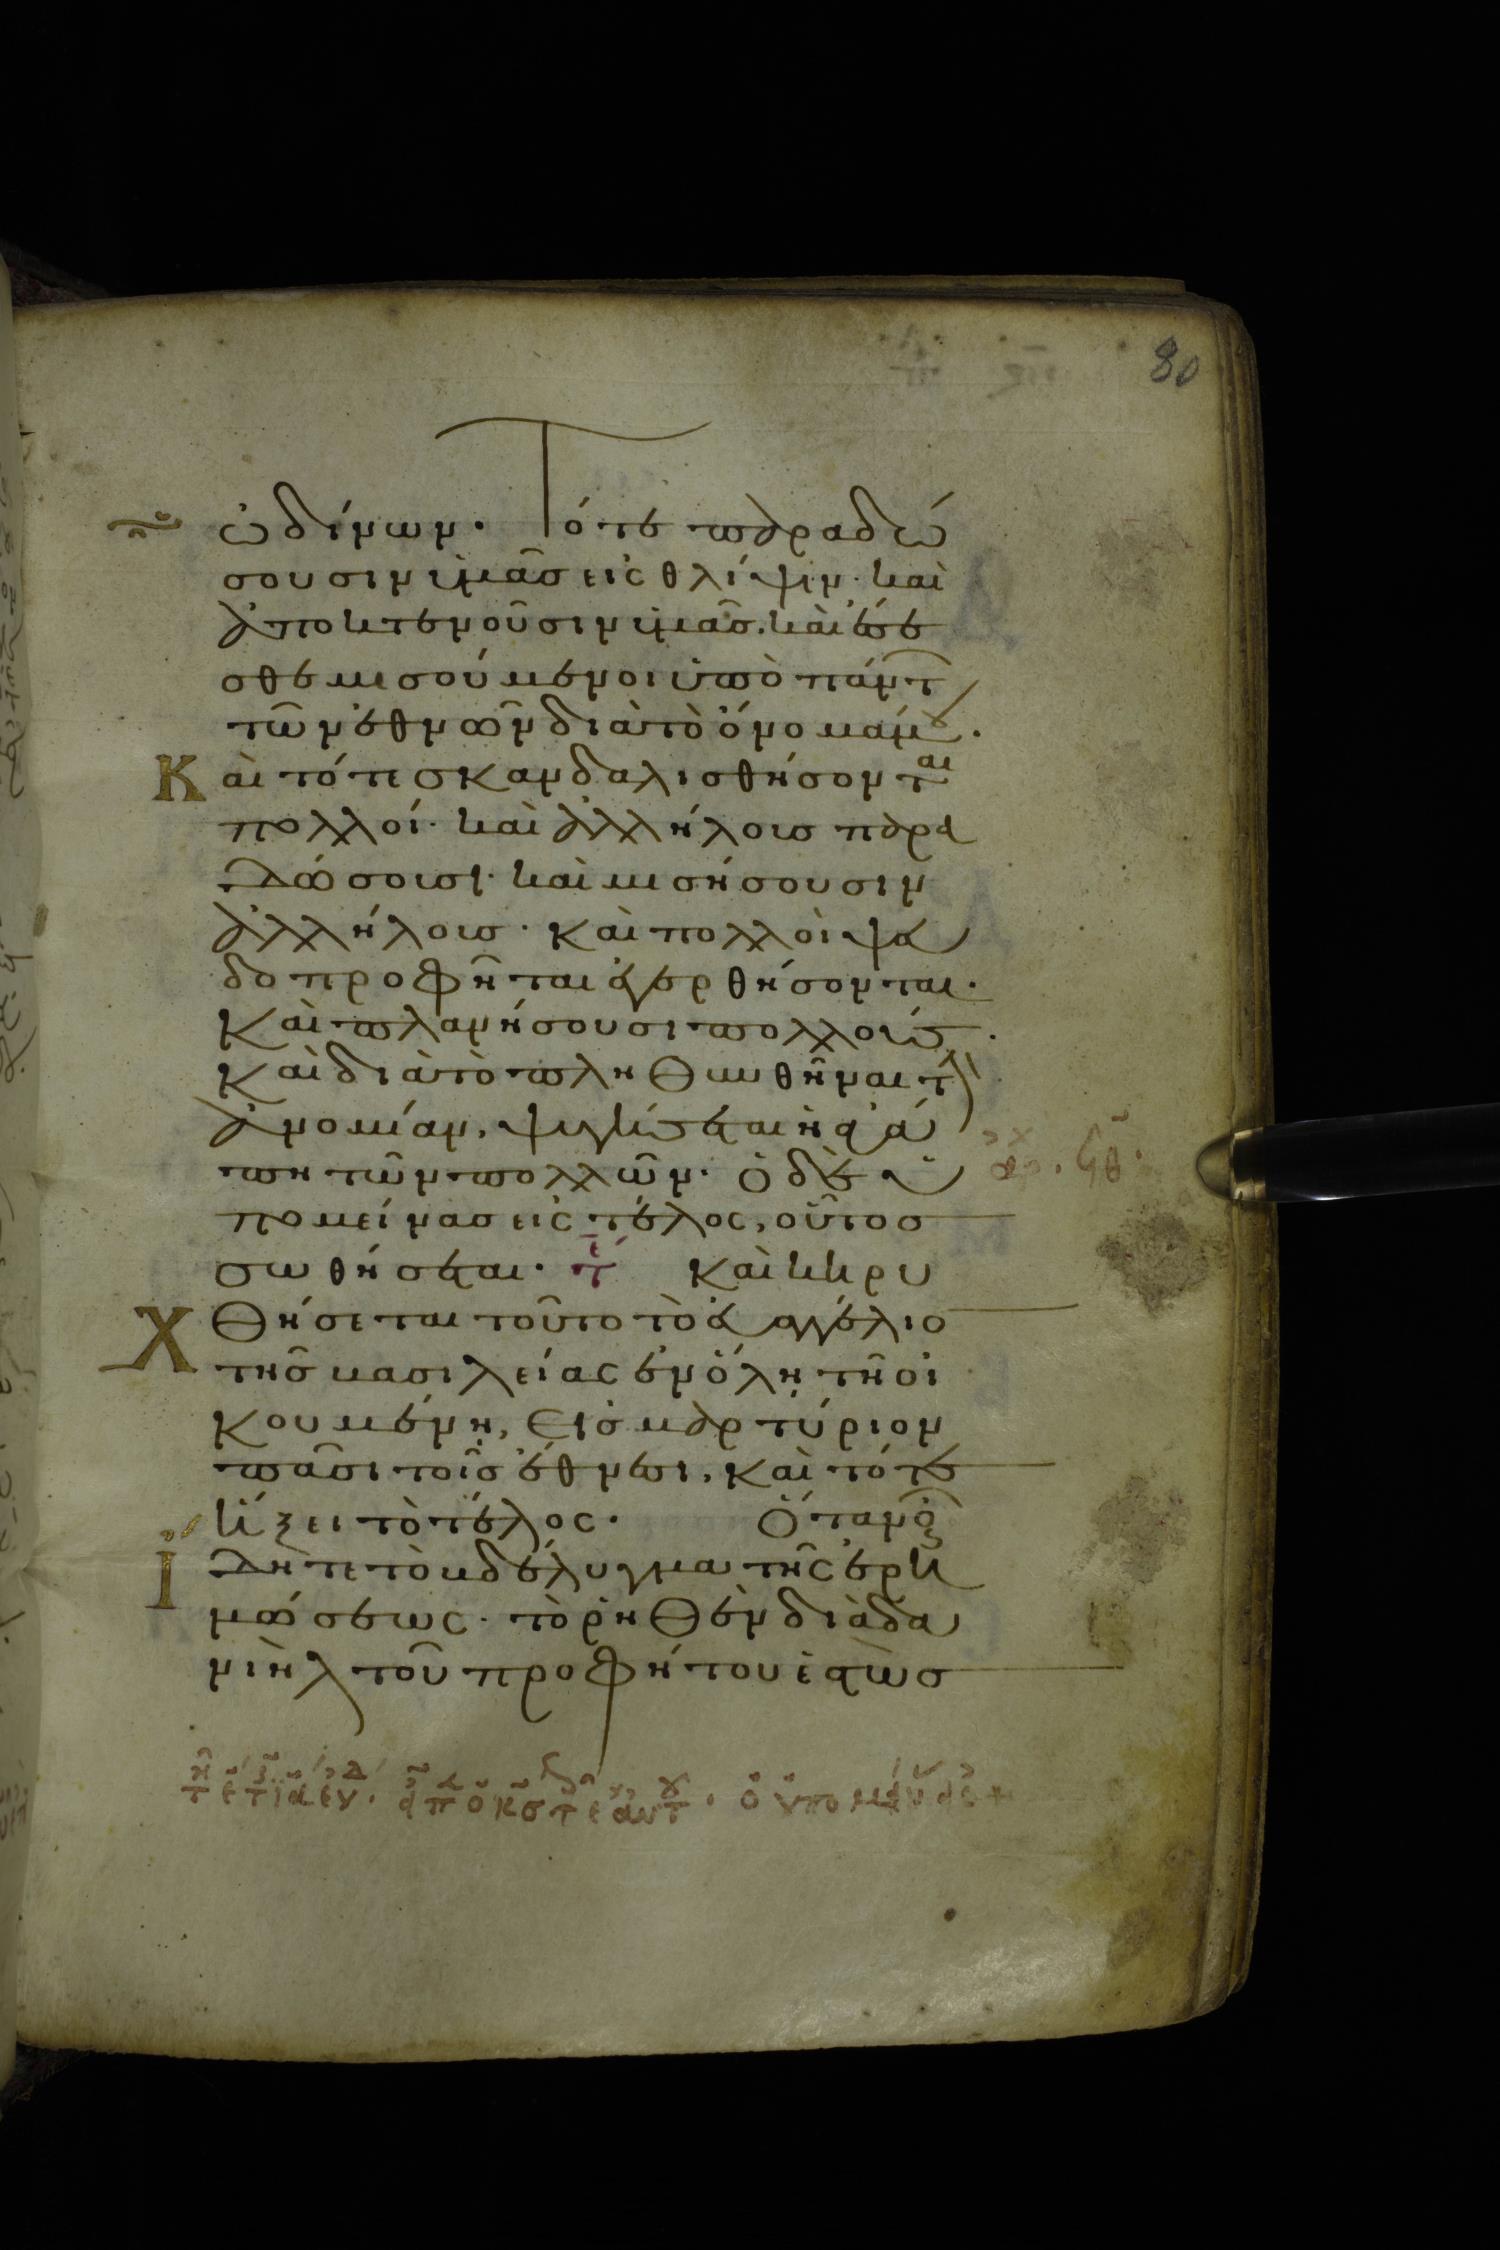 80
ὠδίνων. Τότε παραδώ
σουσιν ὑμᾶσ εἰς θλίψιν· καὶ
ἀποκτενοῦσιν ὑμᾶσ. καὶ ἔσε
σθε μισούμενοι ὑπὸ πάντ
τῶν ἐθνῶν διὰ τὸ ὄνομά μου.
Καὶ τότε σκανδαλισθήσονται
πολλοί· καὶ ἀλλήλουσ παρα
δώσουσι· καὶ μισήσουσιν
ἀλλήλουσ· καὶ πολλοὶ ψευ
δοπροφῆται ἐγερθήσονται·
καὶ πλανήσουσι πολλούσ.
καὶ διὰ τὸ πληθυνθῆναι τὴν
ἀνομίαν, ψυγήσεται ἡ ἀγά
πη τῶν πολλῶν· ὁ δὲ ὑ
πομείνασ εἰς τέλος, οὗτοσ
σωθήσεται· καὶ κηρυ
Χθήσεται τοῦτο τὸ εὐαγγέλιο
τῆσ βασιλείας ἐν ὅλῃ τῆ οἰ
κουμένῃ, εἰσ μαρτύριον
πᾶσι τοῖσ ἔθνεσι, καὶ τότε
ἥξει τὸ τέλος. Ὅταν οὖ
Ίδητε τὸ βδέλυγμα τῆς ἐρη
μώσεως· τὸ ῥηθὲν διὰ δα
νιὴλ τοῦ προφήτου ἑστὼσ